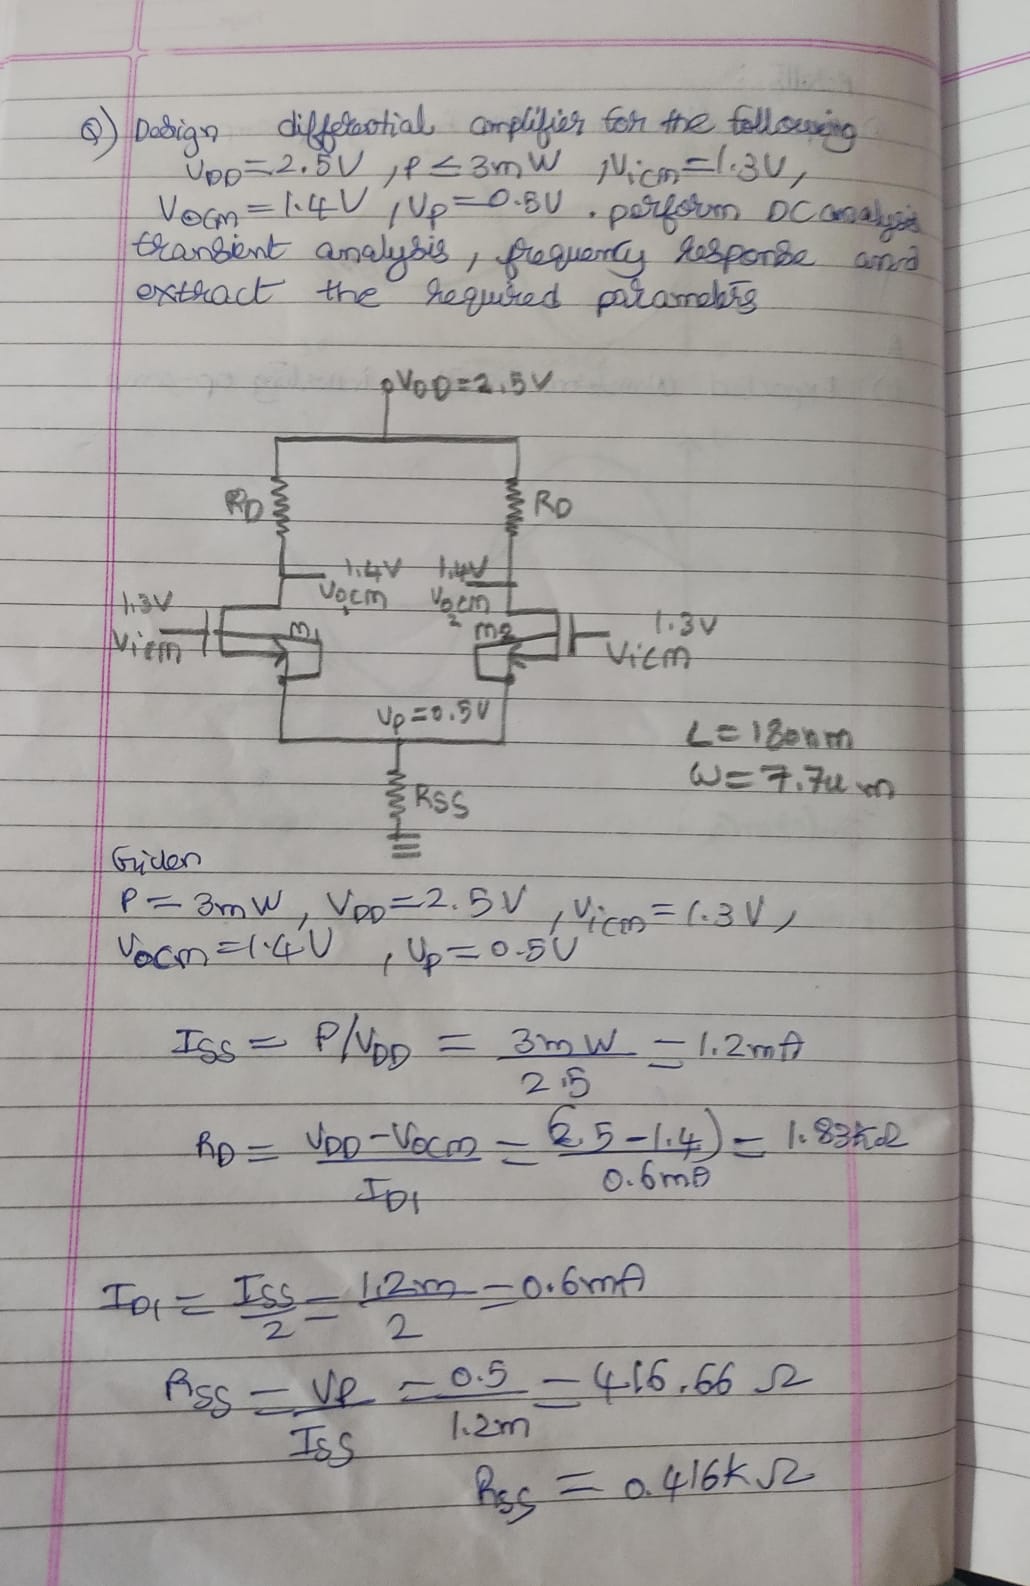 Q) Design differential amplifier for the following
VDD=2.5V, P≤3mW, Vicm=1.3V,
Vocm=1.4V, Vp=0.5V. perform DC analysis
transient analysis, frequency response and
extract the required parameters
VDD=2.5V
RD RD
1.4V 1.4V
Vocm1 Vocm2
1.3V M1 M2 1.3V
Vicm Vicm
Vp=0.5V
L=180nm
W=7.7um
RSS
Given
P=3mW, VDD=2.5V, Vicm=1.3V,
Vocm=1.4V, Vp=0.5V
ISS = P/VDD = 3mW/2.5 = 1.2mA
RD = VDD-Vocm/ID1 = (2.5-1.4)/0.6mA = 1.83kΩ
ID1 = ISS/2 = 1.2m/2 = 0.6mA
RSS = VP/ISS = 0.5/1.2m = 416.66 Ω
RSS = 0.416kΩ